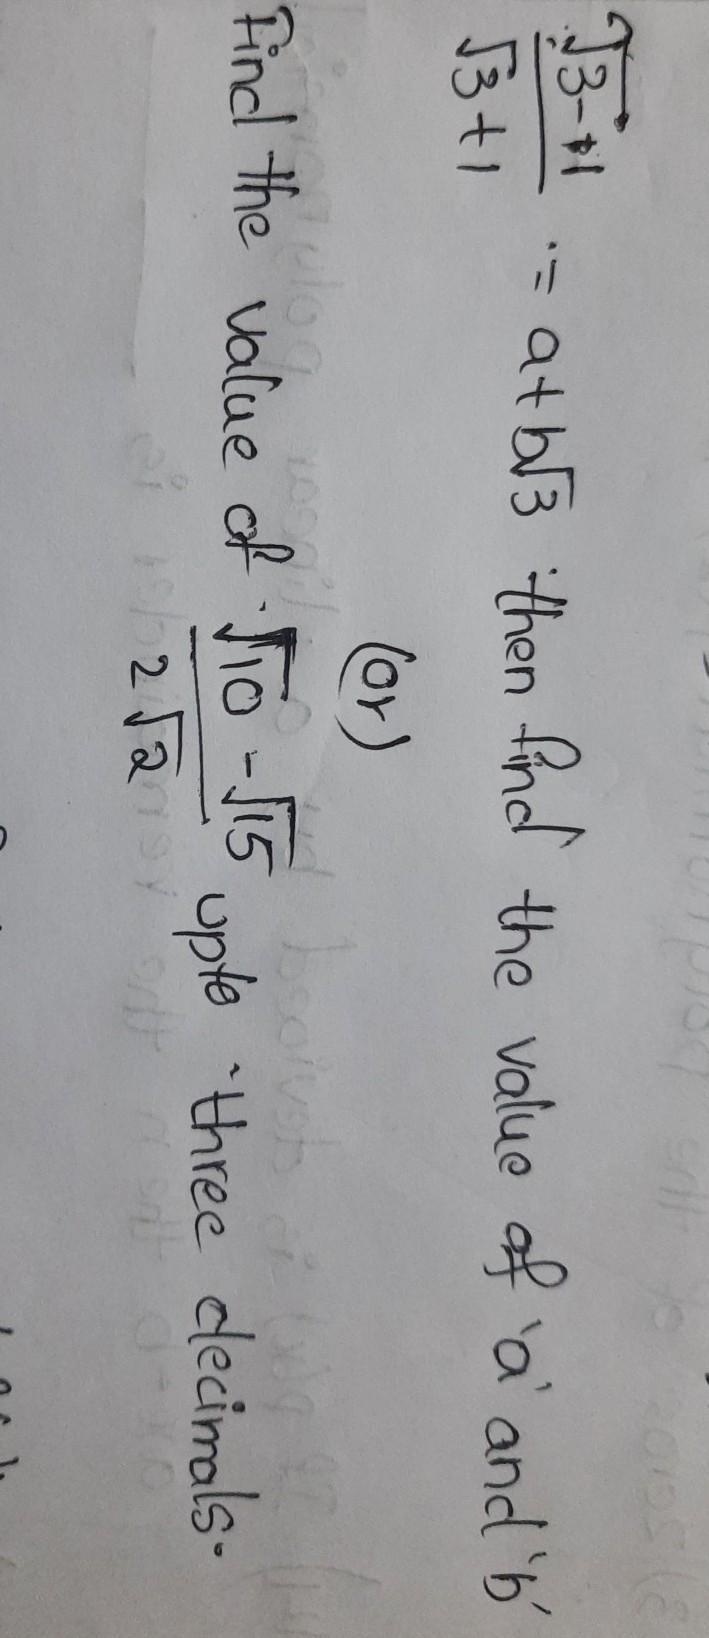 √3-1
√3+1 = a+b√3 then find the value of 'a' and 'b'
(or)
Find the value of √10 - √15
2√2 upto three decimals.